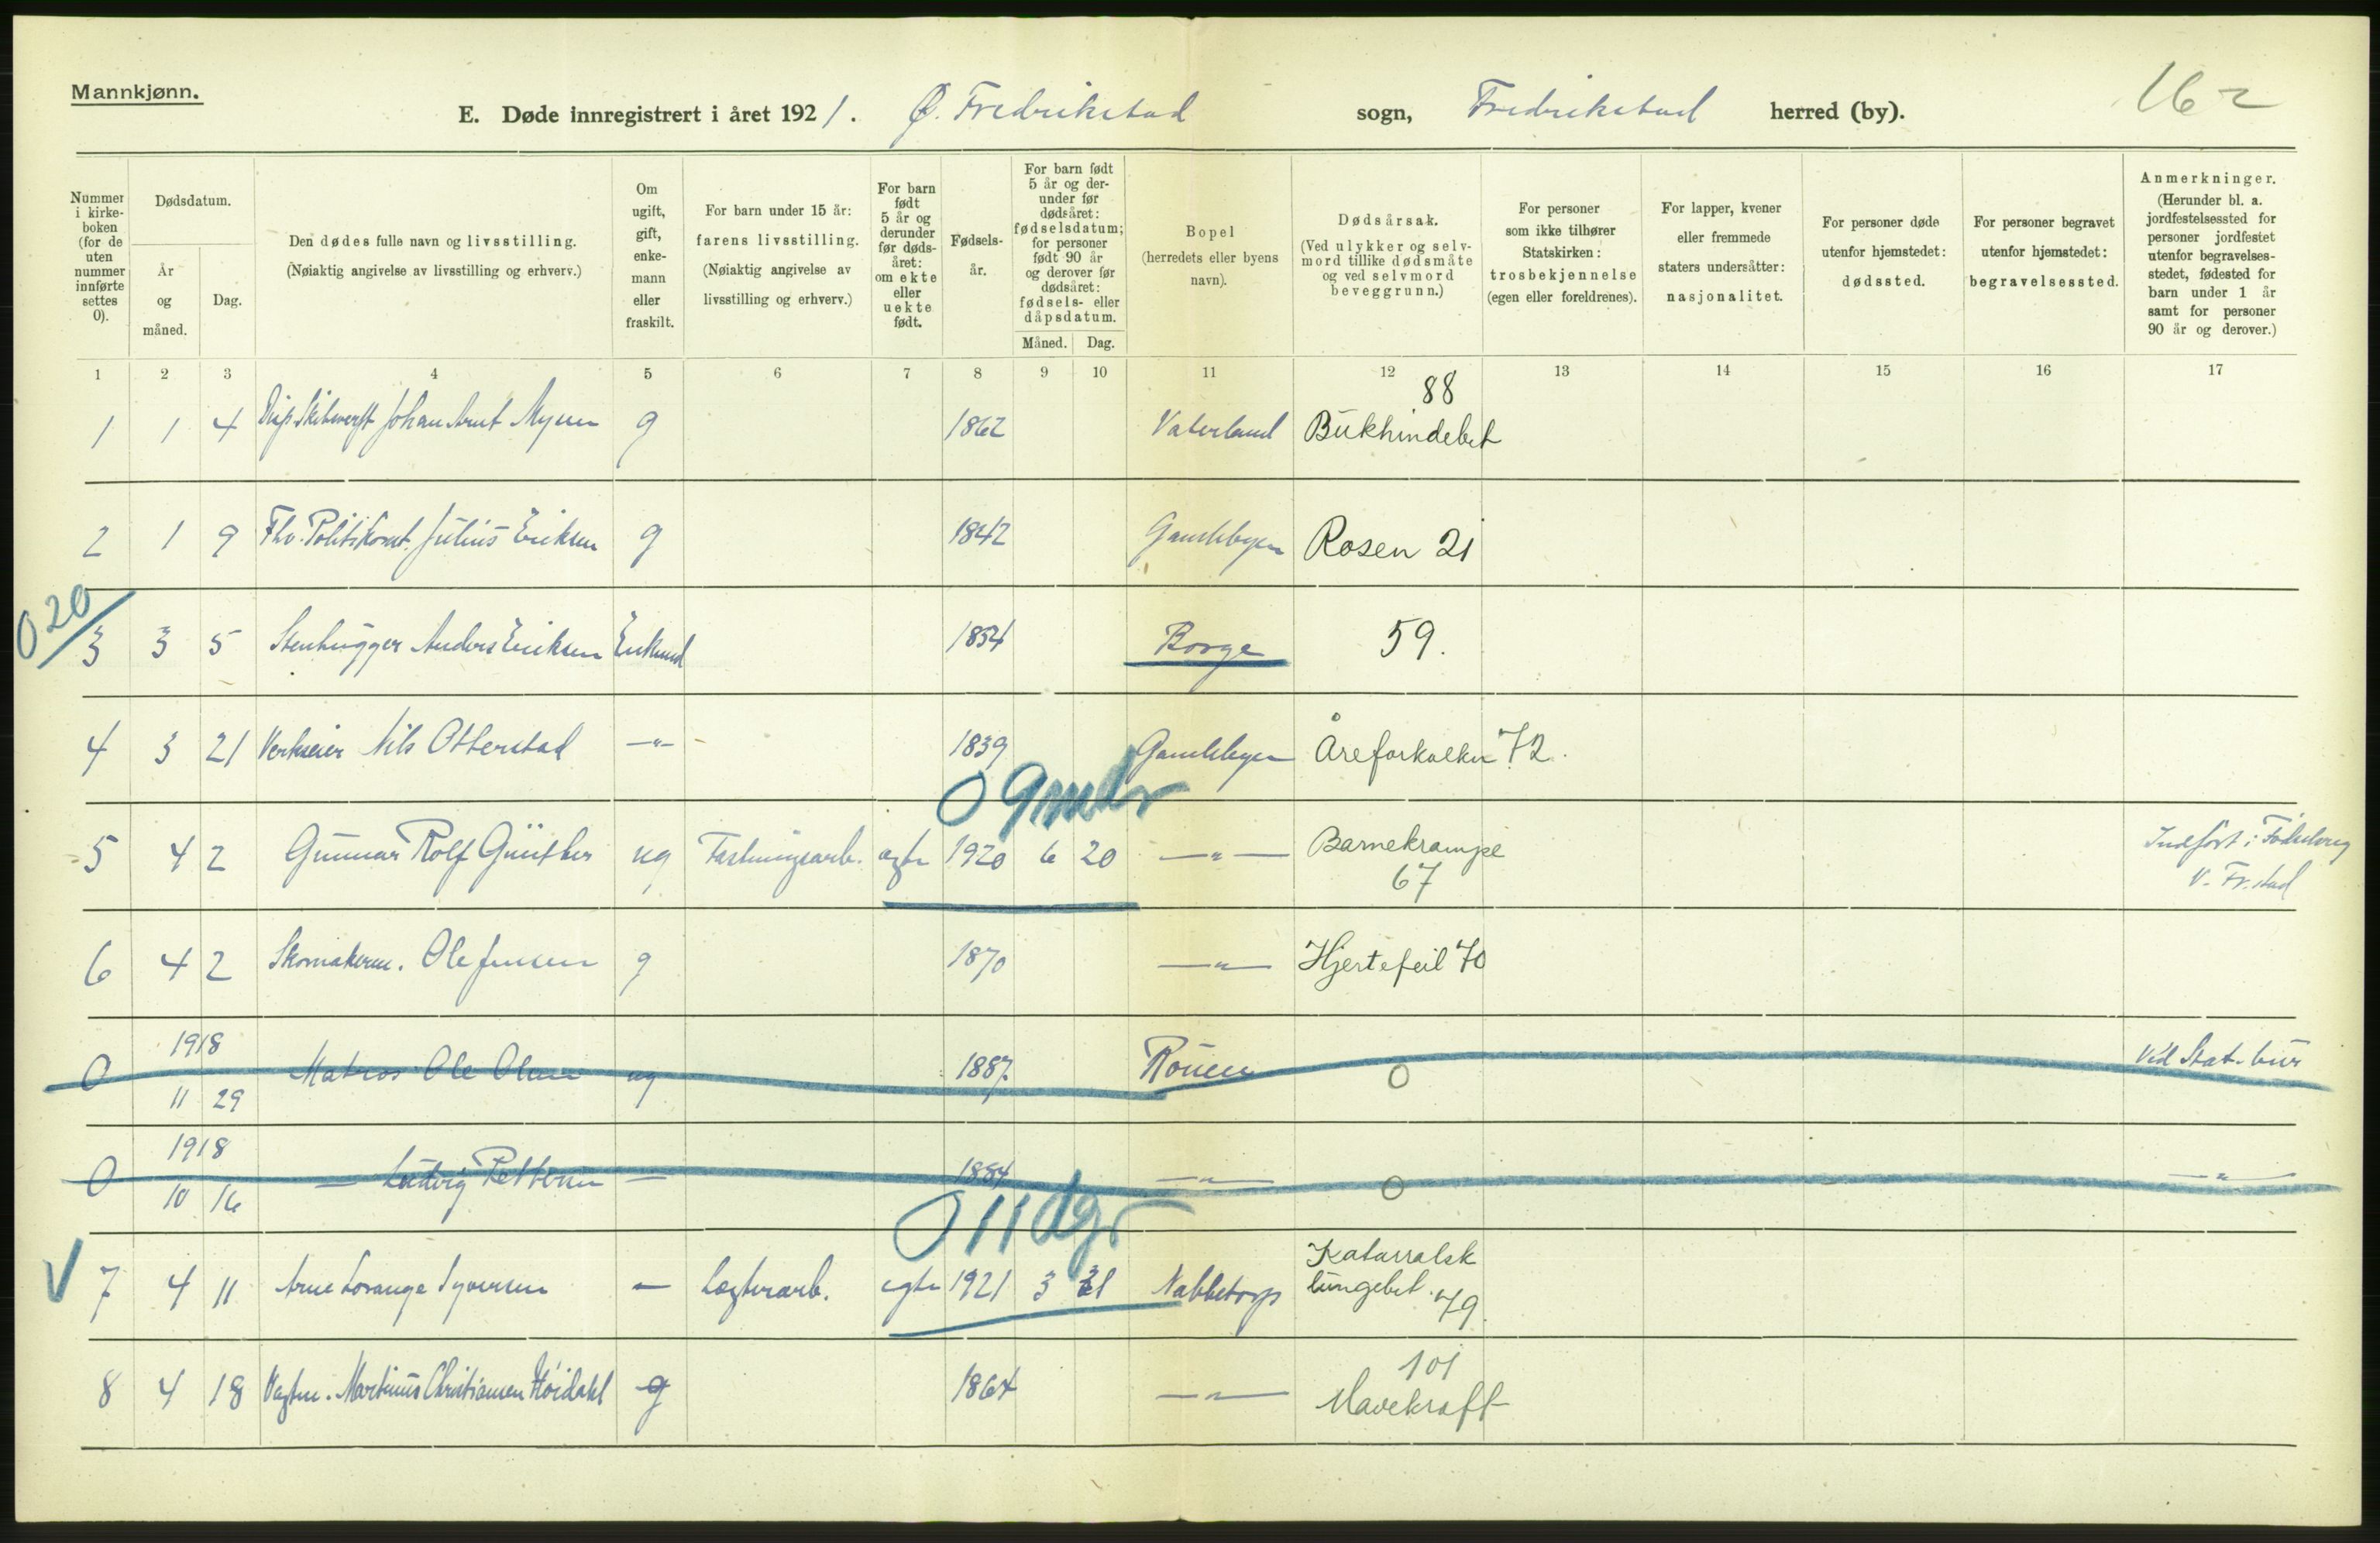 Mannkjønn.
E. Døde innregistrert i året 1921. Ø. Fredrikstad sogn, Fredrikstad herred (by).
162
Nummer i kirke-boken (for de uten nummer innførte settes 0).
Dødsdatum.
År og måned.
Dag.
Den dødes fulle navn og livsstilling.
(Nøiaktig angivelse av livsstilling og erhverv.)
Om ugift, gift, enke-mann eller fraskilt.
For barn under 15 år: farens livsstilling.
(Nøiaktig angivelse av livsstilling og erhverv.)
For barn født 5 år og derunder før døds-året: om ekte eller uekte født.
Fødsels-år.
For barn født 5 år og der-under før dødsåret: fødselsdatum; for personer født 90 år og derover før dødsåret: fødsels- eller dåpsdatum.
Måned. Dag.
Bopel
(herredets eller byens navn).
Dødsårsak.
(Ved ulykker og selv-mord tillike dødsmåte og ved selvmord beveggrunn.)
For personer som ikke tilhører Statskirken: trosbekjennelse (egen eller foreldrenes).
For lapper, kvener eller fremmede staters undersåtter: nasjonalitet.
For personer døde utenfor hjemstedet: dødssted.
For personer begravet utenfor hjemstedet: begravelsessted.
Anmerkninger.
(Herunder bl. a. jordfestelsessted for personer jordfestet utenfor begravelses-stedet, fødested for barn under 1 år samt for personer 90 år og derover.)
1 2 3 4 5 6 7 8 9 10 11 12 13 14 15 16 17
88
1 1 4 Johan Arnt Mysen g 1862 Vaterland Bukhindebet
2 1 9 Fhv. Politikonst. Julius Eriksen g 1842 Gamlebyen Rosen 21
0 20
3 3 5 Stenhugger Anders Eriksen Enkemd 1854 Borge 59.
4 3 21 Verkseier Nils Otterstad —"— 1839 Gamlebyen Åreforkalkn 72.
0 9 mndr
5 4 2 Gunnar Rolf Günther ug Fæstningsarb. ægte 1920 6 20 —"— Barnekrampe
67
Indført i Fødselsreg
V. Fr.stad
6 4 2 Skomakerm. Ole Jensen g 1870 —"— Hjertefeil 70
1918
0 11 29 Matros Ole Olsen ug 1887 Rouen 0 Vid Stat. bur
1918
0 10 16 — Ludvig Pettersen — 1884 —"— 0 —"—
0 11 dgr
V 7 4 11 Arne Lorange Syversen — Lagterarb. egte 1921 3 31 Nabbetorp Katarralsk
lungebet. 79.
101
8 4 18 Vagtm. Martinius Christiansen Höidahl g 1864 —"— Mavekræft